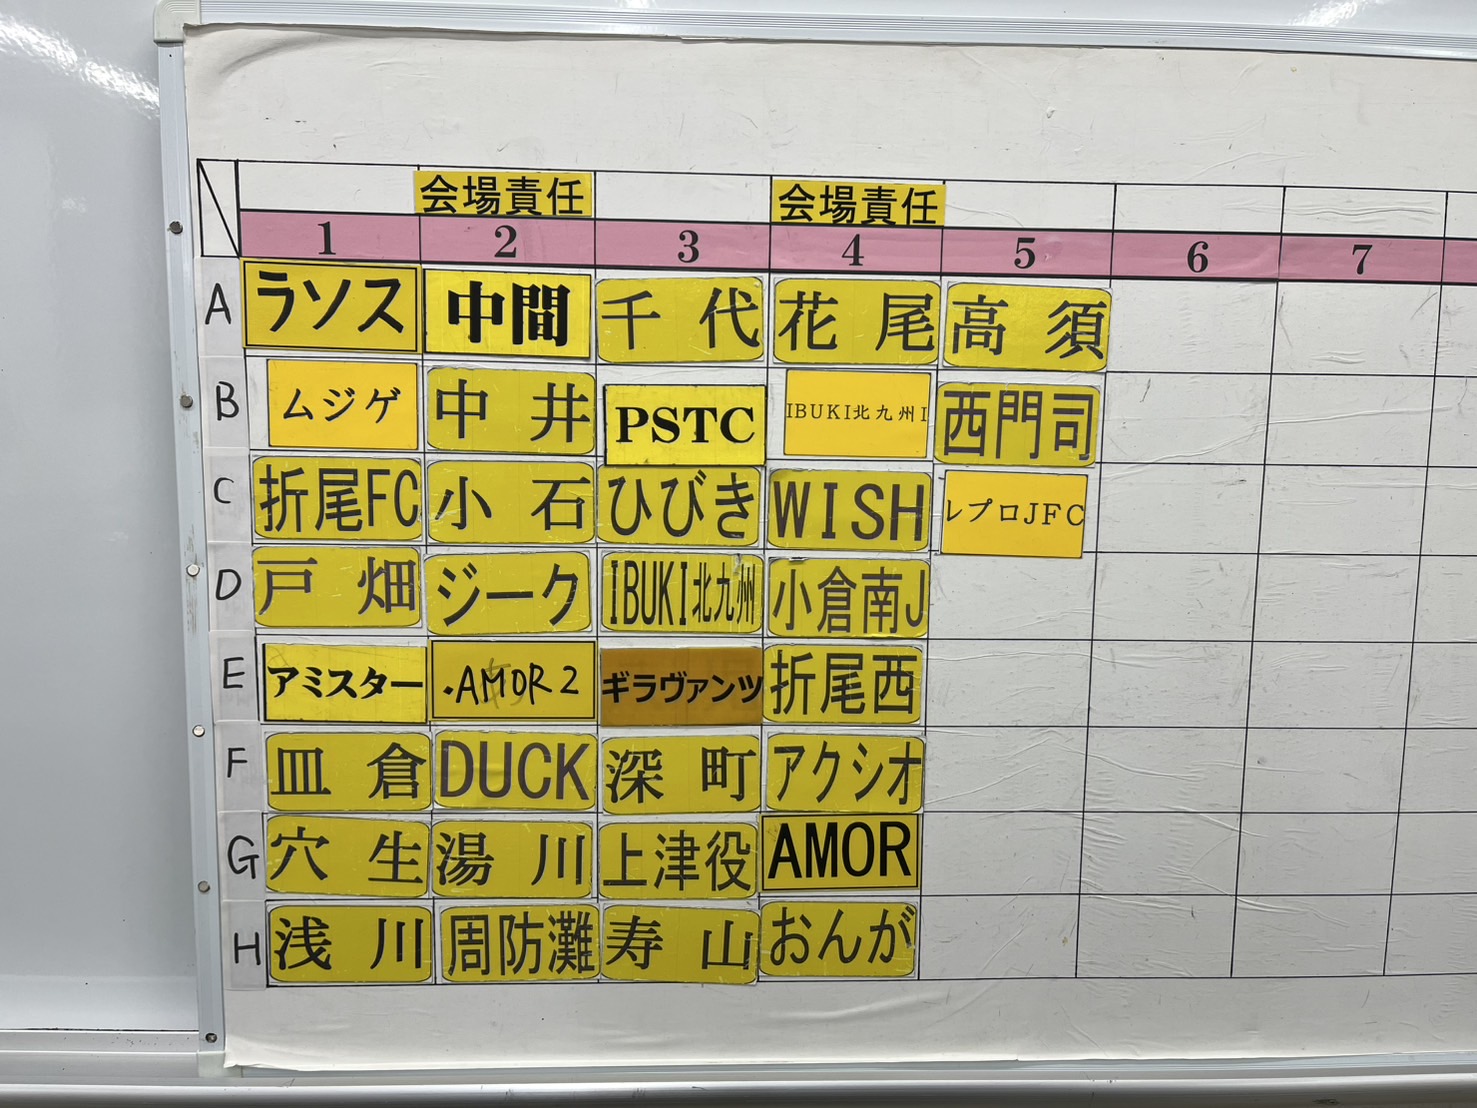 会場責任 会場責任
1 2 3 4 5 6 7
A ラソス 中間 千代 花尾 高須
B ムジゲ 中井 PSTC IBUKI北九州I 西門司
C 折尾FC 小石 ひびき WISH レプロJFC
D 戸畑 ジーク IBUKI北九州 小倉南J
E アミスター .AMOR2 ギラヴァンツ 折尾西
F 皿倉 DUCK 深町 アクシオ
G 穴生 湯川 上津役 AMOR
H 浅川 周防灘 寿山 おんが